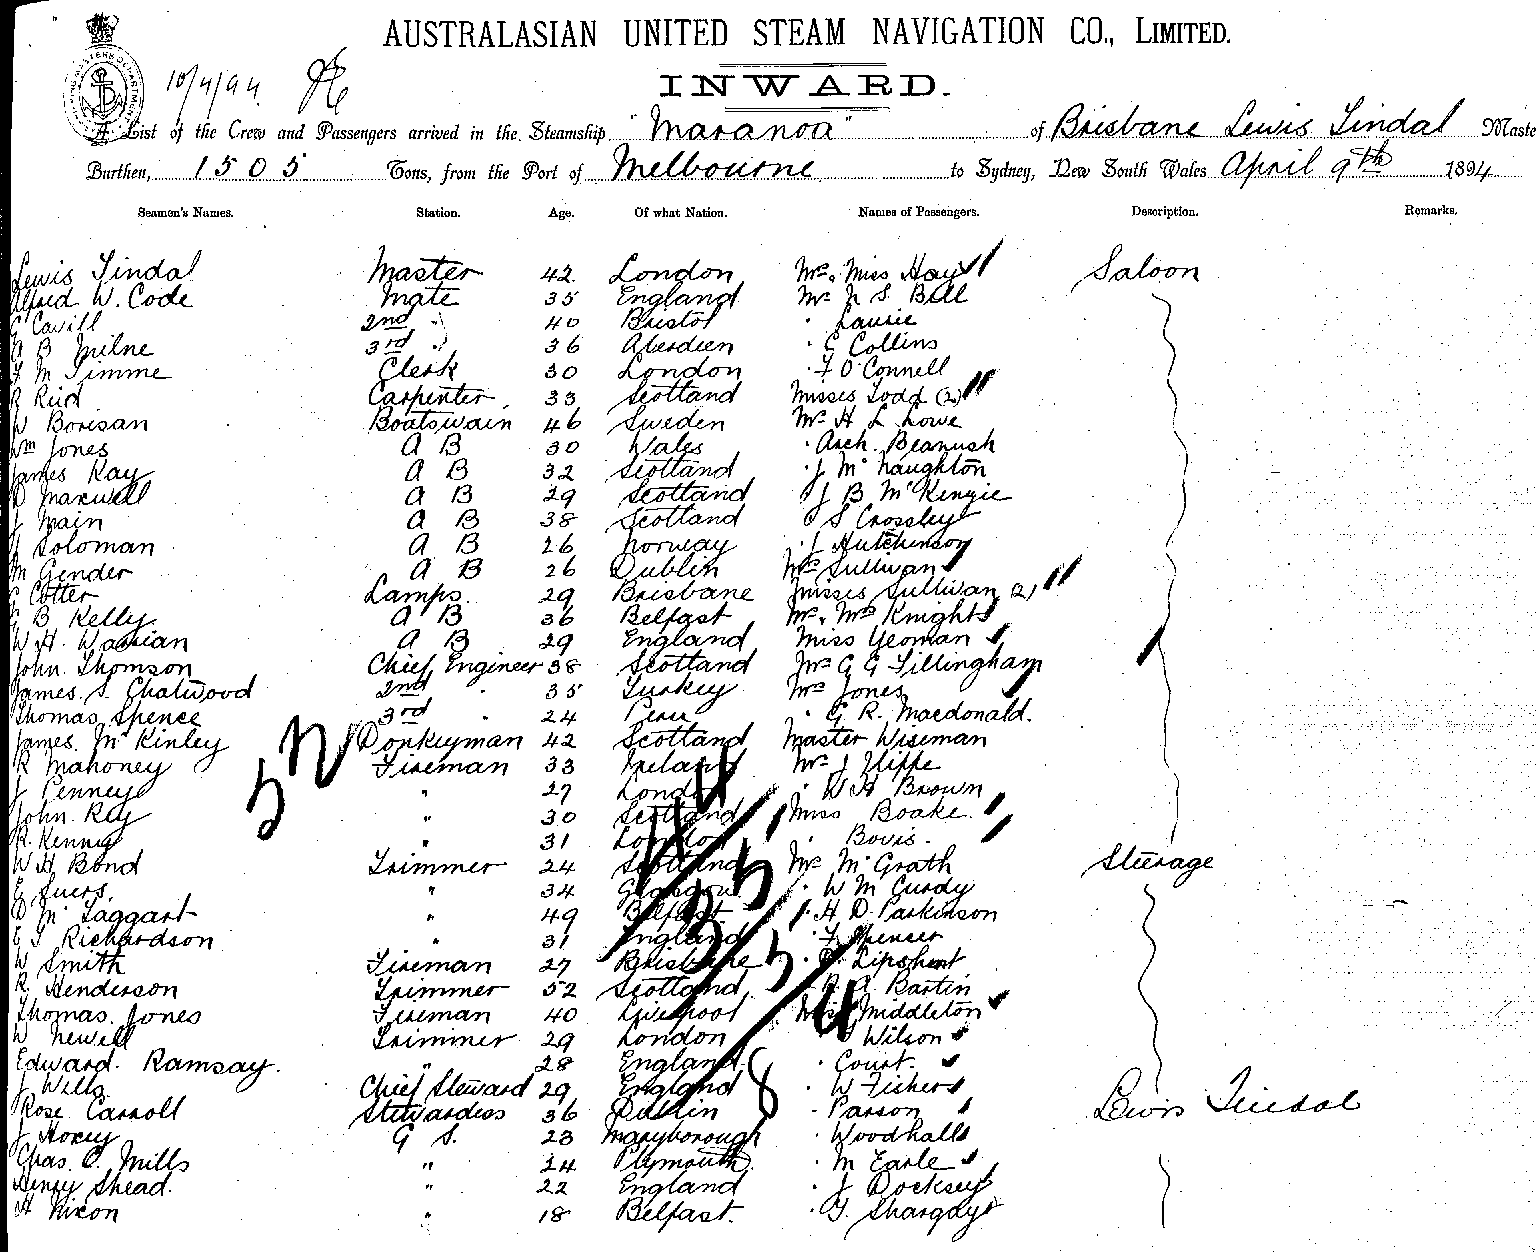 AUSTRALASIAN UNITED STEAM NAVIGATION CO., LIMITED.
10/4/94
INWARD.
A List of the Crew and Passengers arrived in the Steamship "Maranoa" of Brisbane Lewis Tindal Maste
Burthen, 1505 Tons, from the Port of Melbourne to Sydney, New South Wales April 9th 1894
Seamen's Names. Station. Age. Of what Nation. Names of Passengers. Description. Remarks.
Lewis Tindal Master 42 London Mrs, Miss Hay Saloon
Alfred W. Code Mate 35 England Mr N S. Bell
Cavill 2nd " 40 Bristol " Laurie
B Milne 3rd " 36 Aberdeen " E Collins
F M Timme Clerk 30 London " F O'Connell
R Reid Carpenter 33 Scotland Misses Todd (2)
W Borisan Boatswain 46 Sweden Mr H L Lowe
Wm Jones A B 30 Wales " Arch. Beamish
James Kay A B 32 Scotland " J McNaughton
D Maxwell A B 29 Scotland " J B McKenzie
J Main A B 38 Scotland " S Crossley
Soloman A B 26 Norway " J Hutchinson
M Gender A B 26 Dublin Mrs Sullivan
Cotter Lamps 29 Brisbane Misses Sullivan (2)
B Kelly A B 36 Belfast Mr, Mrs Knights
W. H. A B 29 England Miss Yeoman
John Thomson Chief Engineer 38 Scotland Mr G G Fillingham
James S. Chatwood 2nd " 35 Turkey Mrs Jones
Thomas Spence 3rd " 24 Peru " G R. Macdonald.
James McKinley Donkeyman 42 Scotland Master Wiseman
R Mahoney Fireman 33 Ireland Mr J
J Penney " 27 London " W H Brown
John Rey " 30 Scotland Miss Boake
R. Kenny " 31 London " Bovis.
W H Bond Trimmer 24 Scotland Mr McGrath Steerage
E Suers. " 34 Glasgow " W McCurdy
D McTaggart " 49 Belfast " H D Parkinson
E T Richardson " 31 England " F Spencer
W Smith Fireman 27 Brisbane " Lipshut
R. Henderson Trimmer 52 Scotland " A. Bartin
Thomas Jones Fireman 40 Liverpool Middleton
W Newell Trimmer 29 London " Wilson
Edward Ramsay. " 28 England " Court
J Wills Chief Steward 29 England " W Fisher
Rose Carroll Stewardess 36 Dublin " Parson Lewis Tindal
J Horey G S. 23 Maryborough " Woodhall
Chas. C. Mills " 24 Plymouth " M Earle
Henry Shead. " 22 England " J Docksey
H Nixon " 18 Belfast. " G.
52
44
8